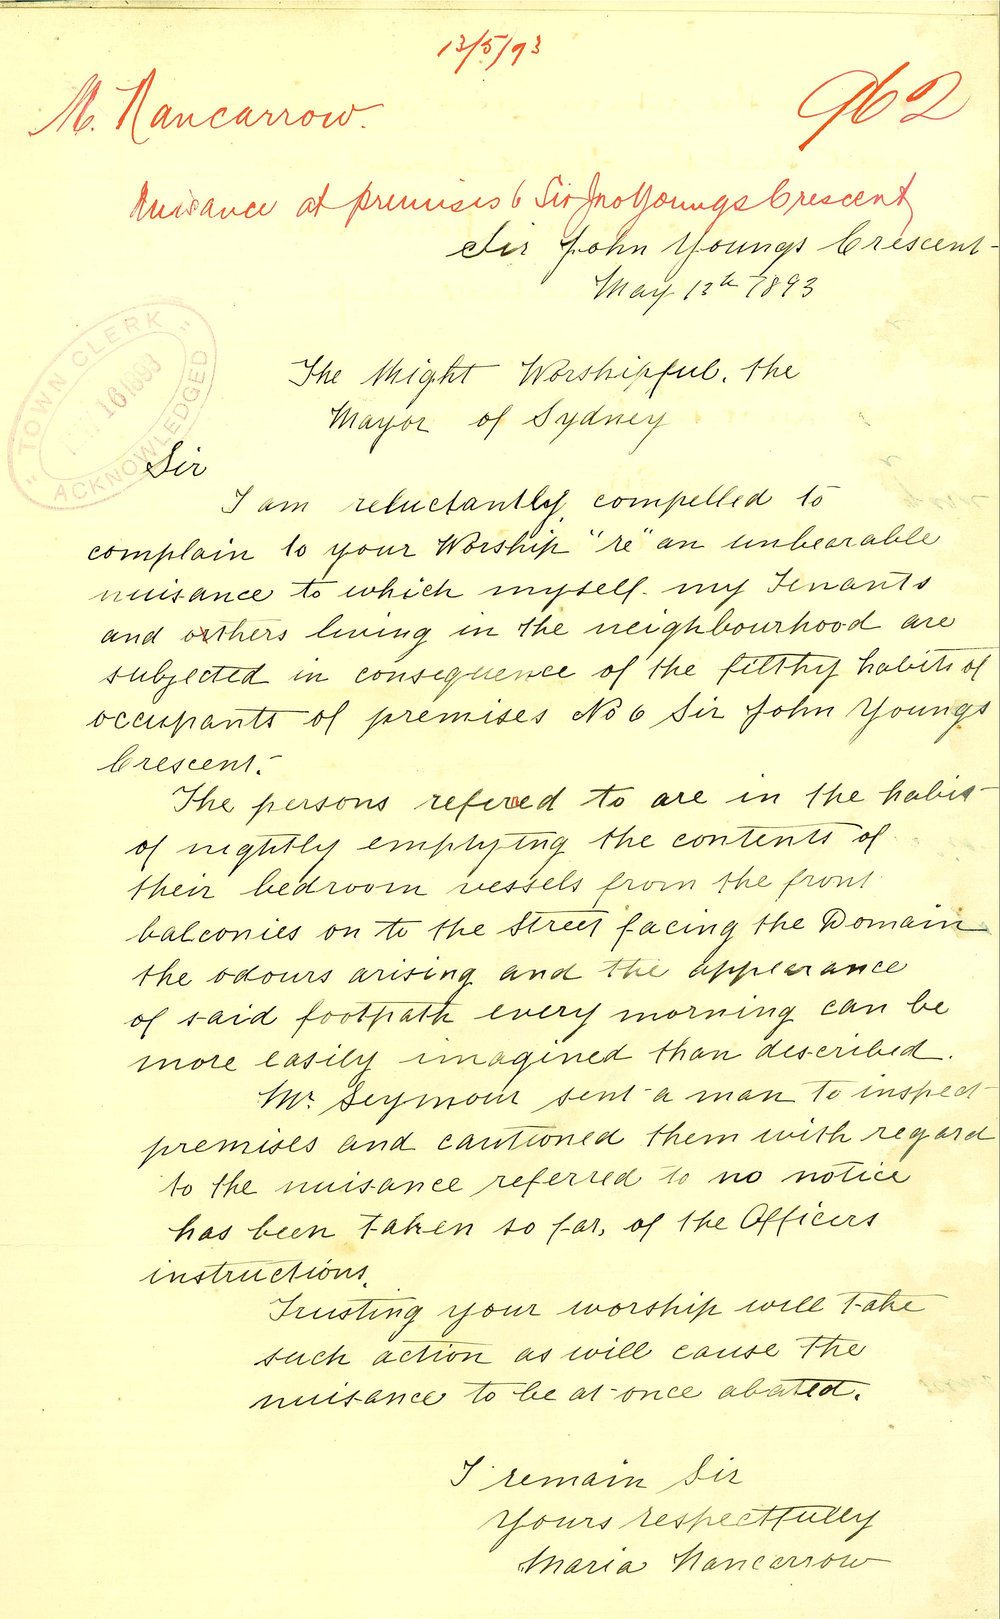 13/5/93
M. Nancarrow.
962
Nuisance at premises 6 Sir Jno Youngs Crescent
Sir John Youngs Crescent
May 13th 1893
The Might Worshipful. the
Mayor of Sydney
"TOWN CLERK"
16 1893
ACKNOWLEDGED
Sir
I am reluctantly compelled to
complain to your Worship "re" an unbearable
nuisance to which myself. my Tenants
and others living in the neighbourhood are
subjected in consequence of the filthy habits of
occupants of premises No 6 Sir John Youngs
Crescent.-
The persons refered to are in the habit
of nightly emptying the contents of
their bedroom vessels from the front
balconies on to the Street facing the Domain
the odours arising and the appearance
of said footpath every morning can be
more easily imagined than described.
Mr. Seymour sent a man to inspect
premises and cautioned them with regard
to the nuisance referred to no notice
has been taken so far, of the Officers
instructions.
Trusting your worship will take
such action as will cause the
nuisance to be at once abated.
I remain Sir
Yours respectfully
Maria Nancarrow